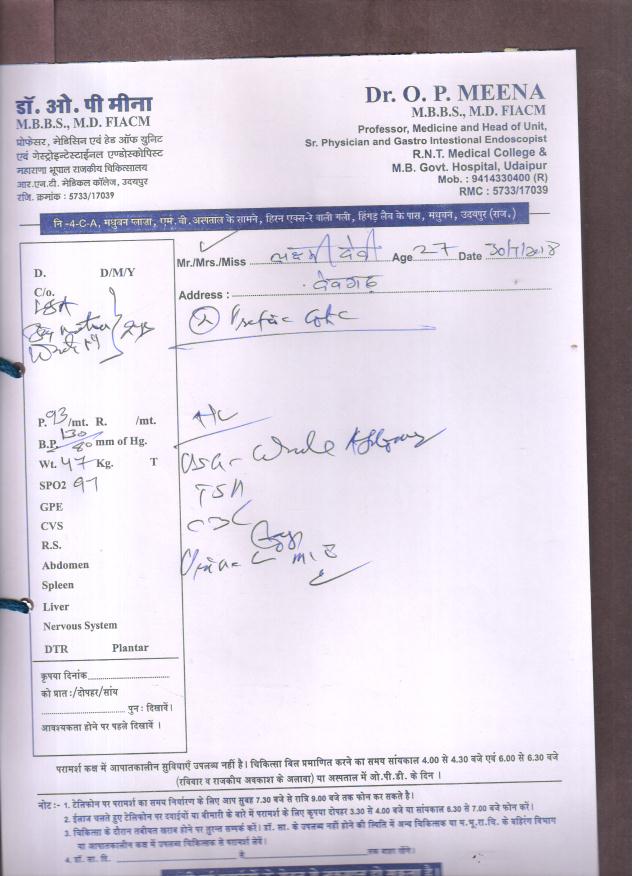 डॉ. ओ. पी मीना
M.B.B.S., M.D. FIACM
प्रोफेसर, मेडिसिन एवं हेड ऑफ यूनिट
एवं गेस्ट्रोइन्टेस्टाईनल एण्डोस्कोपिस्ट
महाराणा भूपाल राजकीय चिकित्सालय
आर.एन.टी. मेडिकल कॉलेज, उदयपुर
रजि. क्रमांक : 5733/17039
Dr. O. P. MEENA
M.B.B.S., M.D. FIACM
Professor, Medicine and Head of Unit,
Sr. Physician and Gastro Intestional Endoscopist
R.N.T. Medical College &
M.B. Govt. Hospital, Udaipur
Mob. : 9414330400 (R)
RMC : 5733/17039
नि -4-C-A, मधुवन प्लाजा, एम. बी. अस्पताल के सामने, हिरन एक्स-रे वाली गली, हिंगड़ लैब के पास, मधुवन, उदयपुर (राज.)
Mr./Mrs./Miss लक्ष्मी देवी Age 27 Date 30/7/2018
Address : देवगढ़
D. D/M/Y
C/o.
P. 93 /mt. R. /mt.
B.P. 130/80 mm of Hg.
Wt. 47 Kg. T
SPO2 97
GPE
CVS
R.S.
Abdomen
Spleen
Liver
Nervous System
DTR Plantar
USG - Whole
TSH
CBC
कृपया दिनांक
को प्रात :/दोपहर/सांय
पुन : दिखावें।
आवश्यकता होने पर पहले दिखावें ।
परामर्श कक्ष में आपातकालीन सुविधाएँ उपलब्ध नहीं है। चिकित्सा बिल प्रमाणित करने का समय सांयकाल 4.00 से 4.30 बजे एवं 6.00 से 6.30 बजे
(रविवार व राजकीय अवकाश के अलावा) या अस्पताल में ओ.पी.डी. के दिन ।
नोट :- 1. टेलिफोन पर परामर्श का समय निर्धारण के लिए आप सुबह 7.30 बजे से रात्रि 9.00 बजे तक फोन कर सकते है।
2. ईलाज चलते हुए टेलिफोन पर दवाईयों या बीमारी के बारे में परामर्श के लिए कृपया दोपहर 3.30 से 4.00 बजे या सांयकाल 6.30 से 7.00 बजे फोन करें।
3. चिकित्सा के दौरान तबीयत खराब होने पर तुरन्त सम्पर्क करें। डॉ. सा. के उपलब्ध नहीं होने की स्थिति में अन्य चिकित्सक या म.भू.रा.चि. के बहिरंग विभाग
या आपातकालीन कक्ष में उपलब्ध चिकित्सक से परामर्श लेवें।
4. डॉ. सा. दि. से तक